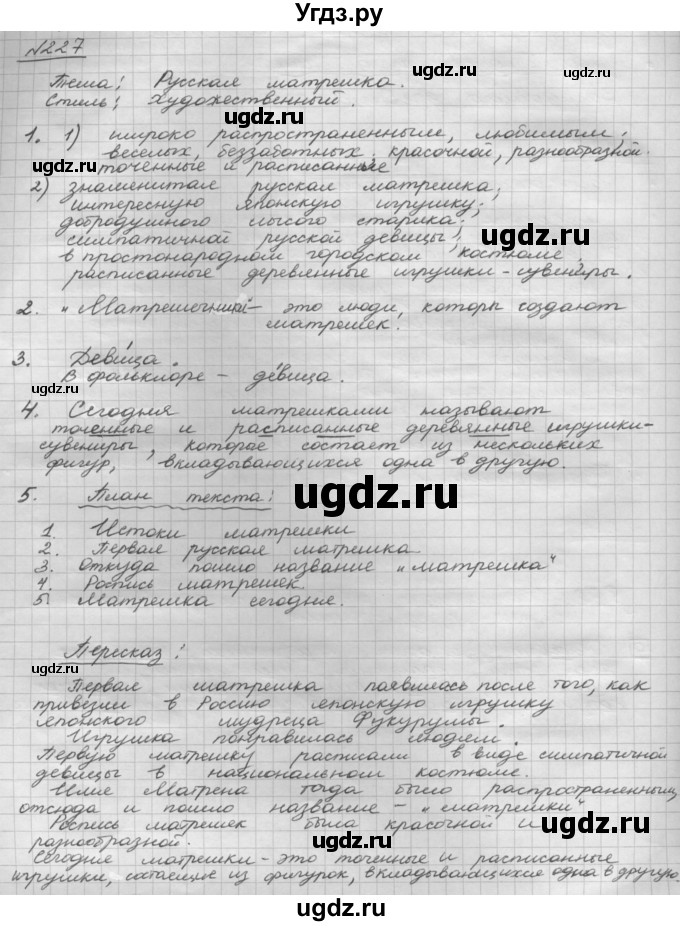 Угдз.ру
№227
ugdz.ru ugdz.ru
Тема: Русская матрешка.
Стиль: художественный.
ugdz.ru ugdz.ru
1. 1) широко распространенным, любимым;
веселых, беззаботных; красочной, разнообразной.
ugdz.ru точенные и расписанные
2) знаменитая русская матрешка;
интересную японскую игрушку;
добродушного лысого старика;
симпатичной русской девицы;
ugdz.ru
в простонародном городском костюме,
расписанные деревянные игрушки-сувениры.
2. „Матрешечники" – это люди, которы создают
матрешек.
3. Деви́ца.
В фольклоре – де́вица.
ugdz.ru
4. Сегодня матрешками называют
точенные и расписанные деревянные игрушки-
сувениры, которые состает из нескольких
фигур, вкладывающихся одна в другую.
5. План текста:
ugdz.ru ugdz.ru
1. Истоки матрешки
2. Первая русская матрешка
3. Откуда пошло название „матрешка"
4. Роспись матрешек
5. Матрешка сегодня.
ugdz.ru
Пересказ:
ugdz.ru ugdz.ru
Первая матрешка появилась после того, как
привезли в Россию японскую игрушку
японского мудреца Фукурумы.
Игрушка понравилась людем.
Первую матрешку расписали в виде симпатичной
девицы в национальном костюме.
ugdz.ru
Имя Матрена тогда было распространенным,
отсюда и пошло название – „матрешки"
Роспись матрешек была красочной и
разнообразной.
ugdz.ru ugdz.ru
Сегодня матрешки – это точенные и расписанные
игрушки, состаящие из фигурок, вкладывающихся одна в другую.
ugdz.ru